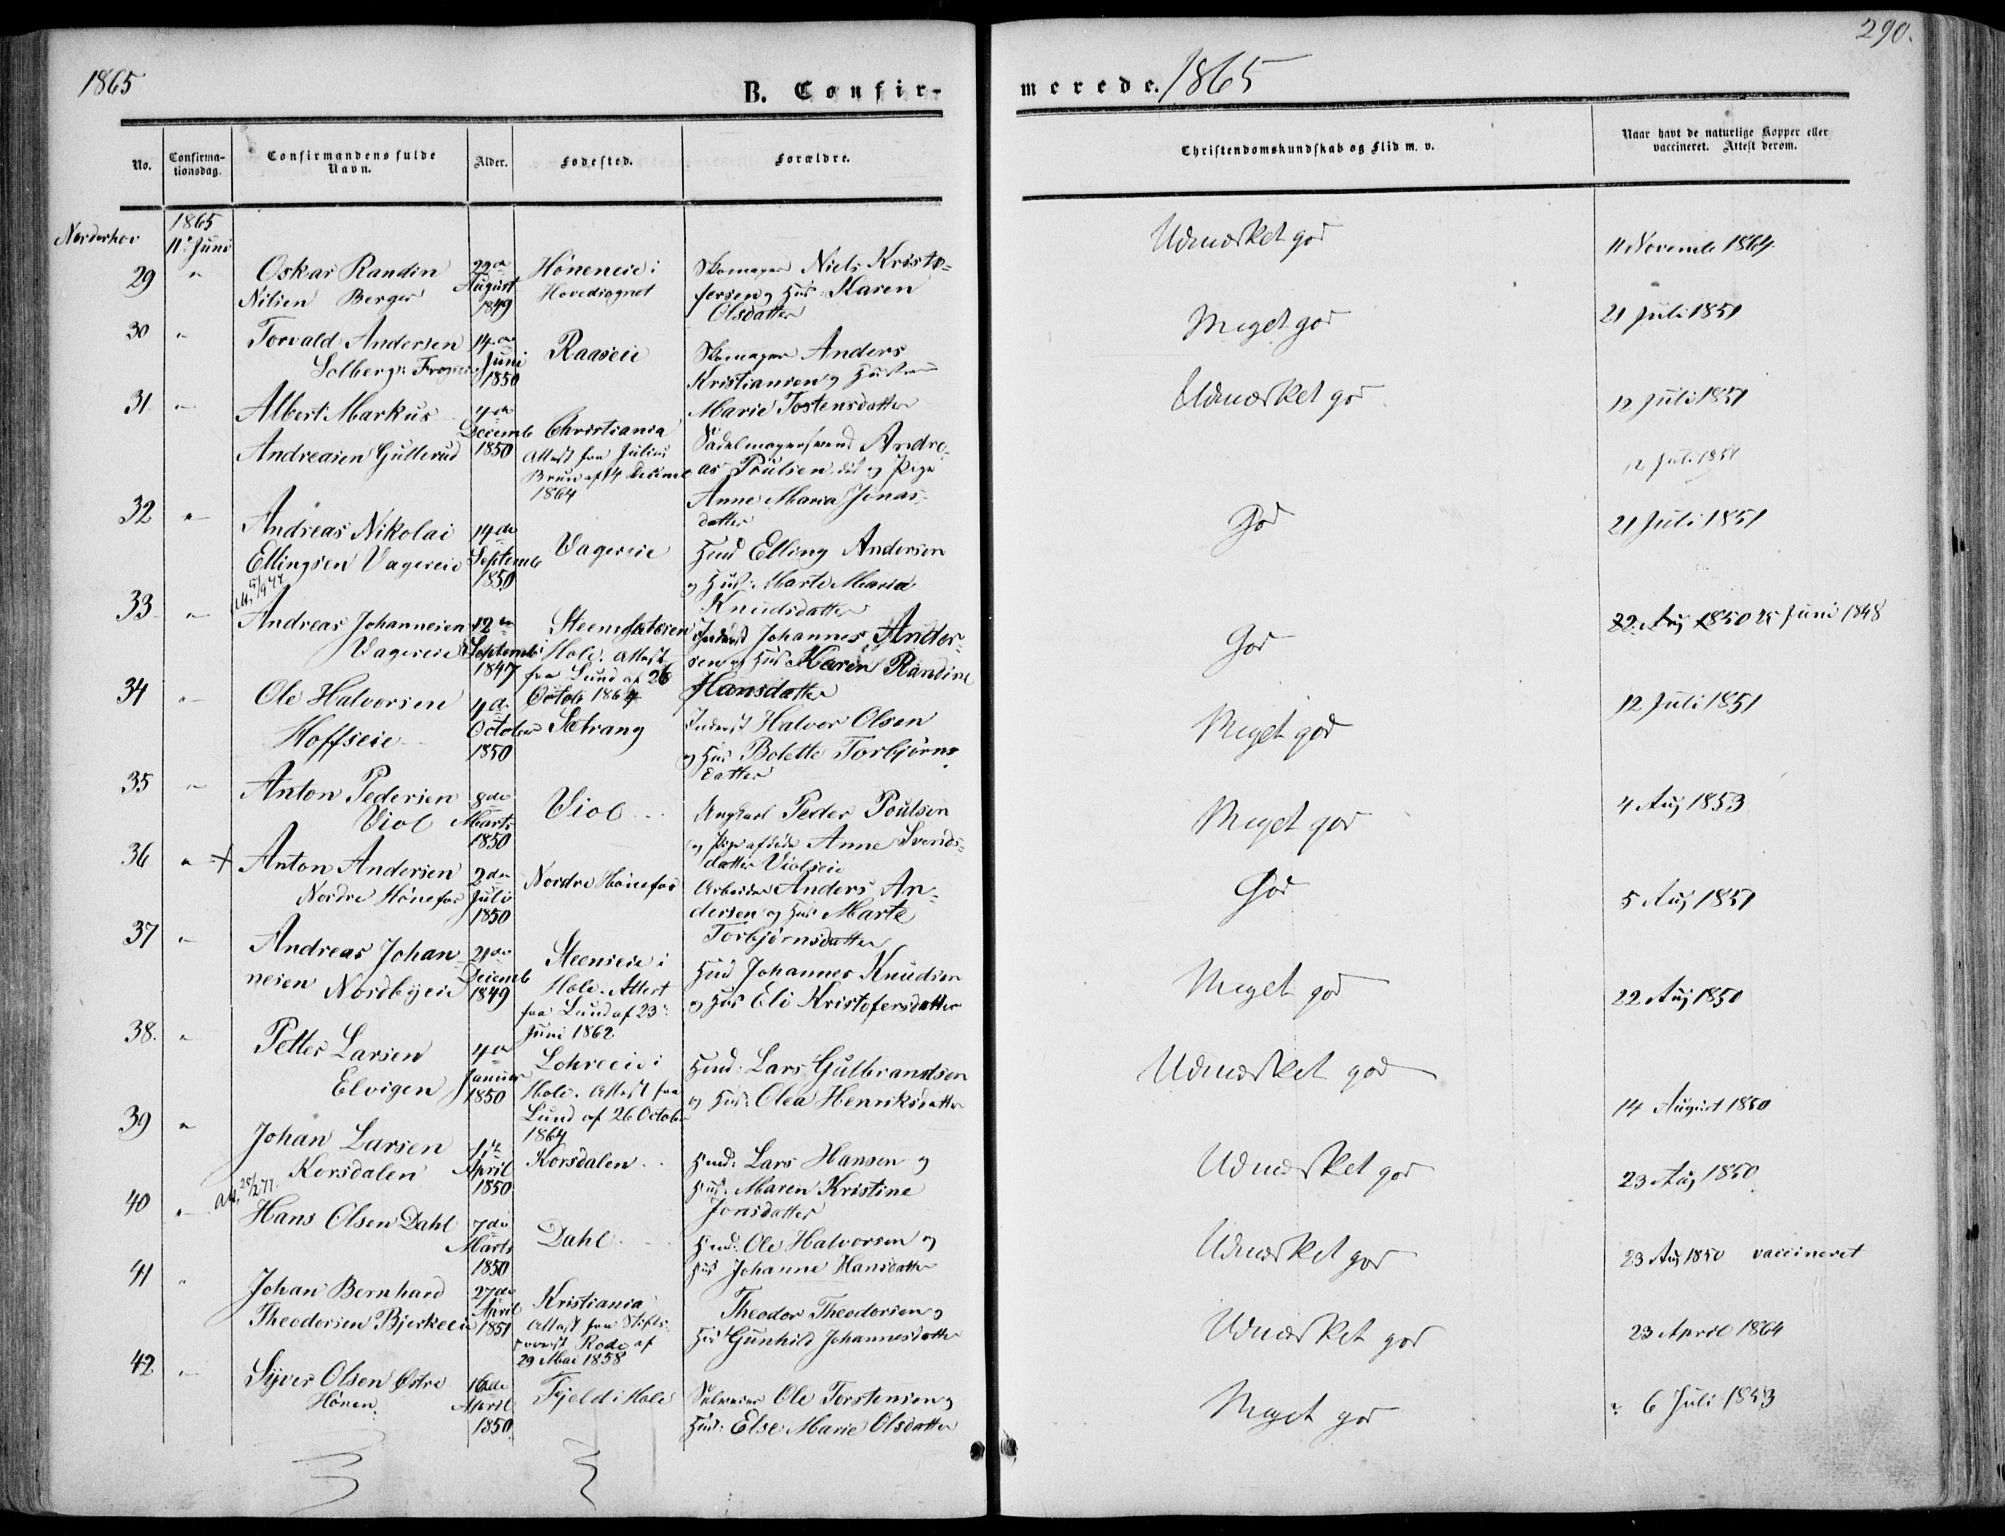 290.
1865
B. Confir-
merede. 1865
No.
Confirma-
tionsdag.
Confirmandens fulde
Navn.
Alder.
Fødested.
Forældre.
Christendomskundskab og Flid m. v.
Naar havt de naturlige Kopper eller
vaccineret. Attest derom.
Norderhov
1865
11te Juni
29 " Oskar Randin
Nilsen Berger
22de
August
1849
Høneneie i
Hovedsognet
Skomager Niels Kristo-
fersen og Hus: Karen
Olsdatter
Udmærket god
11 Novemb 1864
30 " Torvald Andersen
Solberg
14de
Juni
1850
Raaseie
Skomager Anders
Kristiansen og Hustru
Marie Tostensdatter
Meget god
21 Juli 1851
31 " Albert Markus
Andreasen Gulterud
4de
Decemb
1850
Christiania
Attest fra Julius
Bruun af 4 Decemb
1864
Sadelmagersvend Andre-
as Poulsen og Pige
Anne Maria Jonas-
datter
Udmærket god
12 Juli 1851
12 Juli 1851
32 " Andreas Nikolai
Ellingsen Vagereie
14de
Septemb
1850
Vagereie
Huusm Elling Andersen
og Hust: Marte Maria
Knudsdatter
God
21 Juli 1851
33 " Andreas Johannesen
Vagereie
12te
Septemb
1847
Hole. Attest
fra Lund af 26
Octob 1864
Inderst Johannes Ander-
sen og Hus Karen Randine
Hansdatter
God
22 Aug 1850 25 Juni 1848
34 " Ole Halvorsen
Hoffseie
4de
October
1850
Sætrang
Inderst Halvor Olsen
og Hus Bolette Torbjørns-
datter
Meget god
12 Juli 1851
35 " Anton Pedersen
Viol
8de
Marts
1850
Viol
Ungkarl Peder Poulsen
og Pige afdøde Anne Svends-
datter Violseie
Meget god
4 Aug 1853
36 " + Anton Andersen
Nordre Hønefos
2den
Juli
1850
Nordre Hønefos
Arbeider Anders An-
dersen og Hus Marte
Torbjørnsdatter
God
5 Aug 1851
37 " Andreas Johan-
nesen Nordbyeie
21de
Decemb
1849
Steenseie i
Hole. Attest
fra Lund af 23de
Juni 1862
Husmd Johannes Knudsen
og Hus Eli Kristofersdatter
Meget god
22 Aug 1850
38. " Petter Larsen
Elvigen
4de
Januar
1850
Lohreeie i
Hole. Attest fra
Lund af 26 October
1864
Husmd: Lars Gulbrandsen
og Hus: Olea Henriksdatter
Udmærket god
14 August 1850
39 " Johan Larsen
Korsdalen
1ste
April
1850
Korsdalen
Husmd: Lars Hansen og
Hus. Maren Kristine
Jonsdatter
Udmærket god
23 Aug 1850
40 " Att. 25/2 77.
Hans Olsen Dahl
7de
Marts
1850
Dahl
Husmd: Ole Halvorsen og
Hus Johanne Hansdatter
Udmærket god
23 Aug 1850 vaccineret
41 " Johan Bernhard
Theodorsen Bjerkeeie
27de
April
1851
Kristiania
Attest fra Stifts-
provst Rode af
29 Mai 1858
Theodor Theodorsen og
Hus Gunhild Johannesdatter
Udmærket god
23 April 1864
42 " Syver Olsen Østre
Hønen.
16de
April
1850
Fjeld i Hole
Selveier Ole Torstensen og
Hus: Else Marie Olsdatter
Meget god
6 Juli 1853